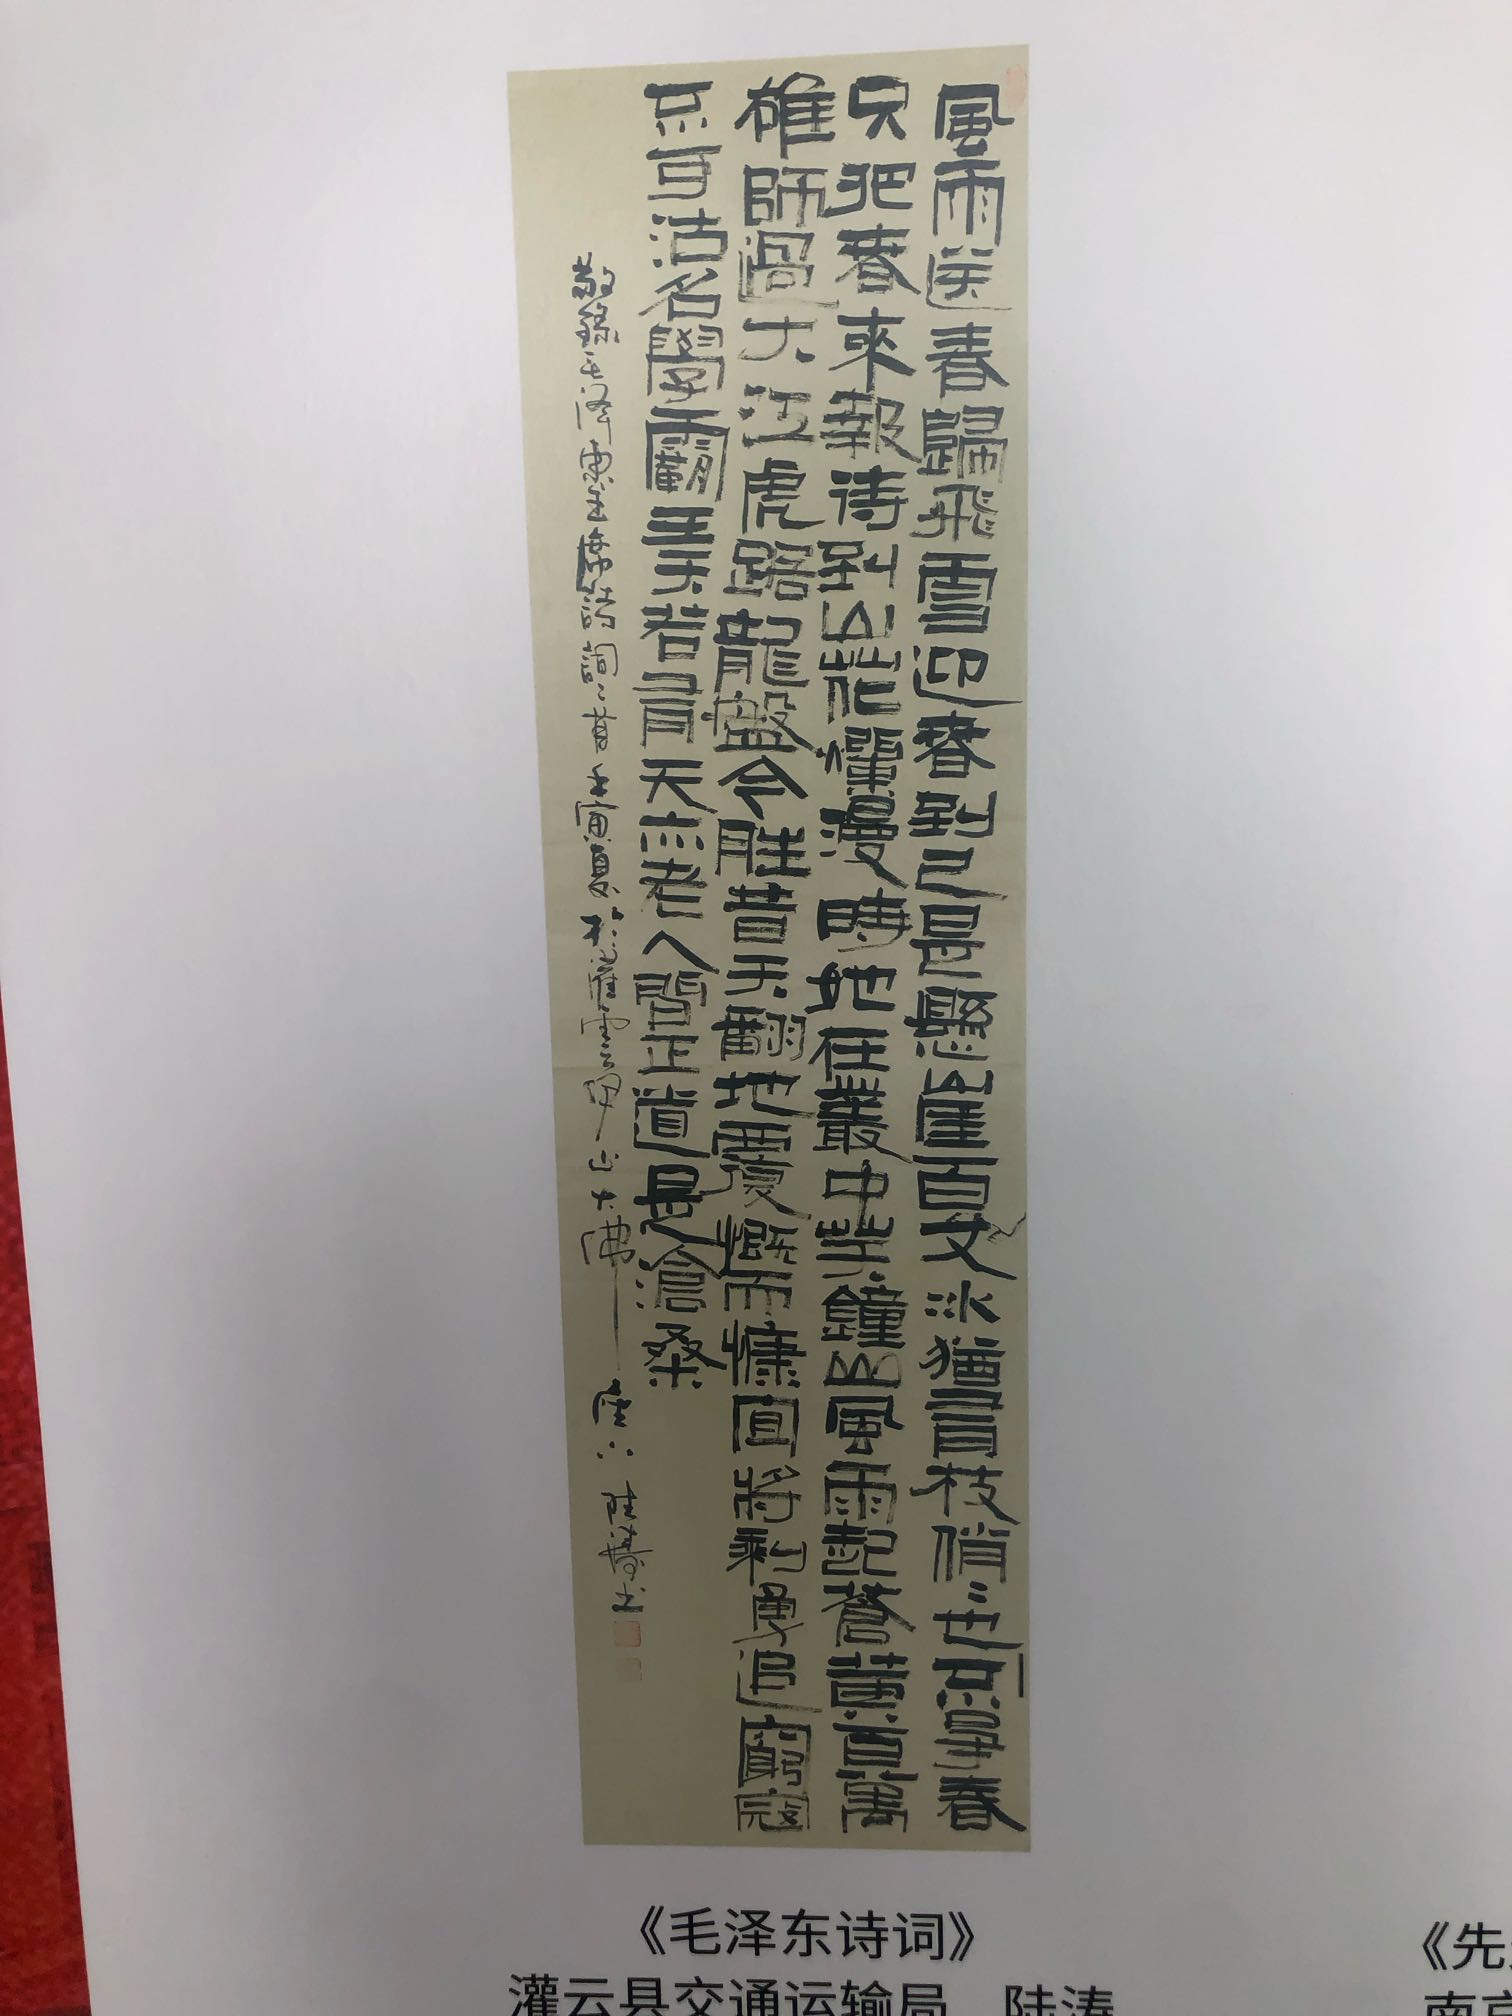 風雨送春歸飛雪迎春到已是懸崖百丈冰猶有花枝俏俏也不爭春
只把春來報待到山花爛漫時她在叢中笑鐘山風雨起蒼黃百萬
雄師過大江虎踞龍盤今勝昔天翻地覆慨而慷宜將剩勇追窮寇
不可沽名學霸王天若有情天亦老人間正道是滄桑
敬錄毛澤東主席詩詞二首壬寅夏於灌雲
《毛泽东诗词》
灌云县交通运输局 陆涛
《先